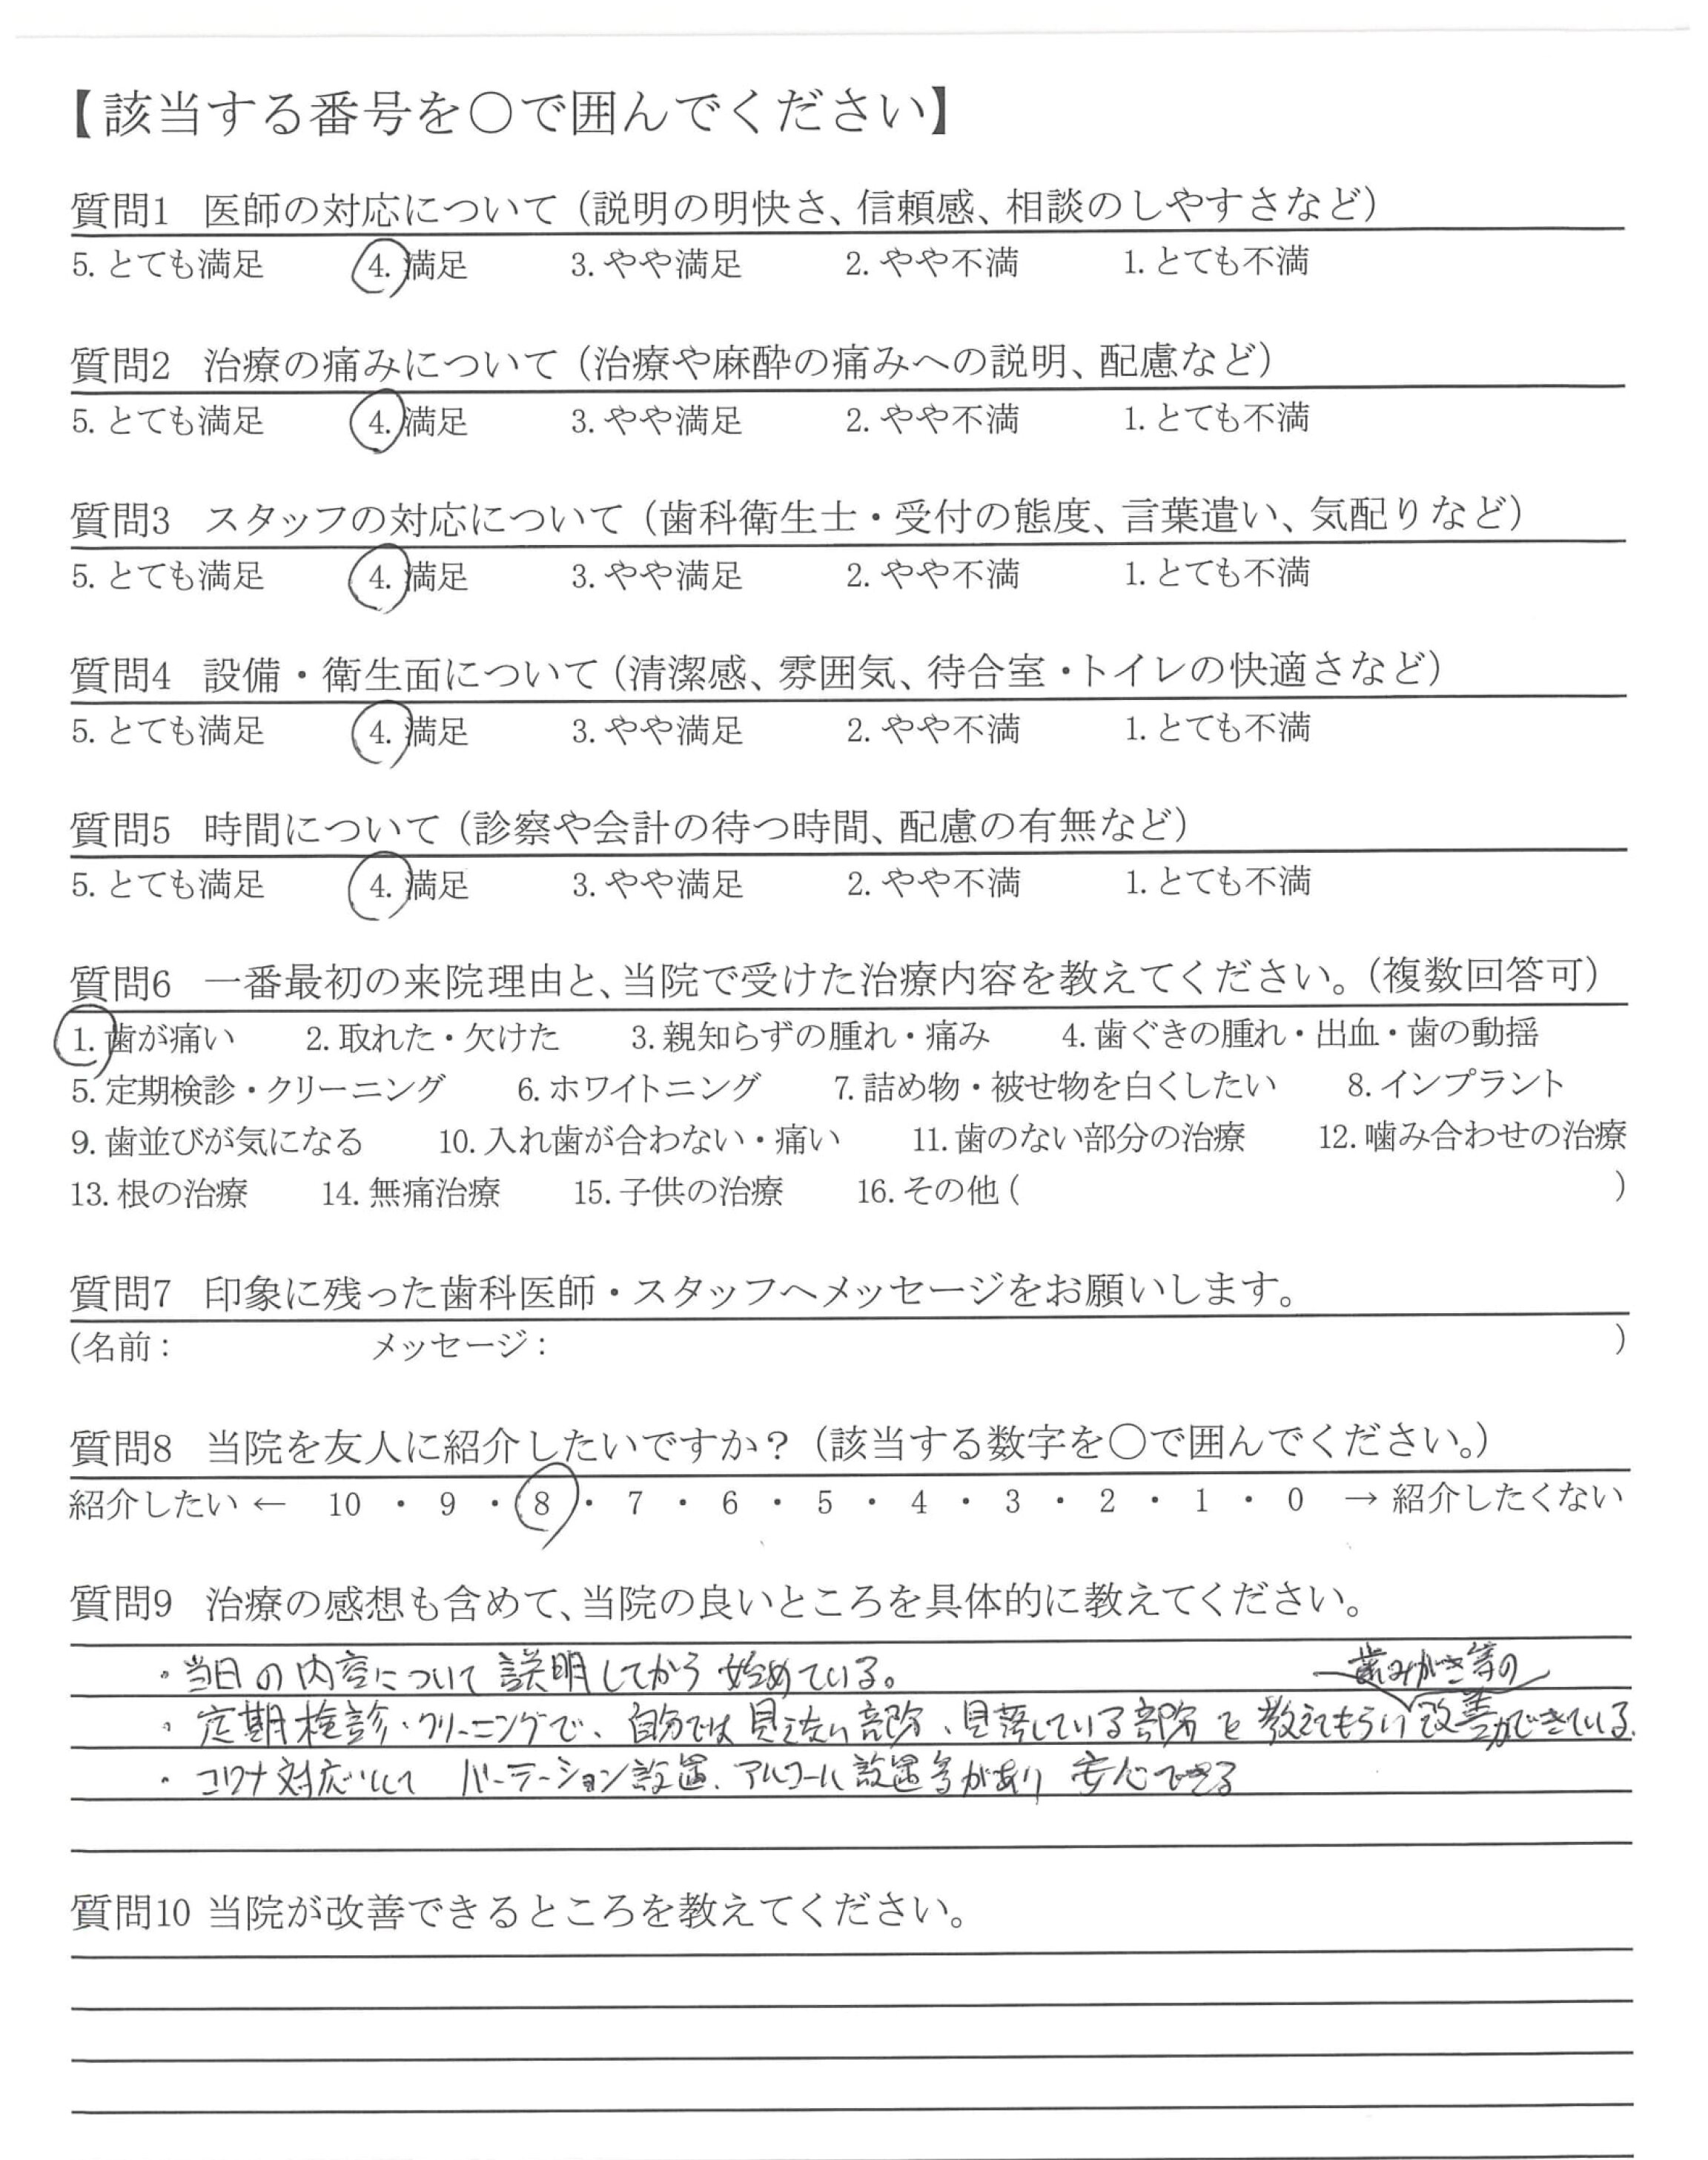 【該当する番号を〇で囲んでください】
質問1 医師の対応について（説明の明快さ、信頼感、相談のしやすさなど）
5. とても満足 4. 満足 3. やや満足 2. やや不満 1. とても不満
質問2 治療の痛みについて（治療や麻酔の痛みへの説明、配慮など）
5. とても満足 4. 満足 3. やや満足 2. やや不満 1. とても不満
質問3 スタッフの対応について（歯科衛生士・受付の態度、言葉遣い、気配りなど）
5. とても満足 4. 満足 3. やや満足 2. やや不満 1. とても不満
質問4 設備・衛生面について（清潔感、雰囲気、待合室・トイレの快適さなど）
5. とても満足 4. 満足 3. やや満足 2. やや不満 1. とても不満
質問5 時間について（診察や会計の待つ時間、配慮の有無など）
5. とても満足 4. 満足 3. やや満足 2. やや不満 1. とても不満
質問6 一番最初の来院理由と、当院で受けた治療内容を教えてください。（複数回答可）
1. 歯が痛い 2. 取れた・欠けた 3. 親知らずの腫れ・痛み 4. 歯ぐきの腫れ・出血・歯の動揺
5. 定期検診・クリーニング 6. ホワイトニング 7. 詰め物・被せ物を白くしたい 8. インプラント
9. 歯並びが気になる 10. 入れ歯が合わない・痛い 11. 歯のない部分の治療 12. 噛み合わせの治療
13. 根の治療 14. 無痛治療 15. 子供の治療 16. その他 ( )
質問7 印象に残った歯科医師・スタッフへメッセージをお願いします。
(名前： メッセージ： )
質問8 当院を友人に紹介したいですか？（該当する数字を〇で囲んでください。）
紹介したい ← 10 ・ 9 ・ 8 ・ 7 ・ 6 ・ 5 ・ 4 ・ 3 ・ 2 ・ 1 ・ 0 → 紹介したくない
質問9 治療の感想も含めて、当院の良いところを具体的に教えてください。
・当日の内容について説明してから始めている。
歯みがき等の
・定期検診・クリーニングで、自分では見えない部分、見落している部分を教えてもらい改善ができている。
・コロナ対応として パーテーション設置、アルコール設置等があり 安心できる
質問10 当院が改善できるところを教えてください。